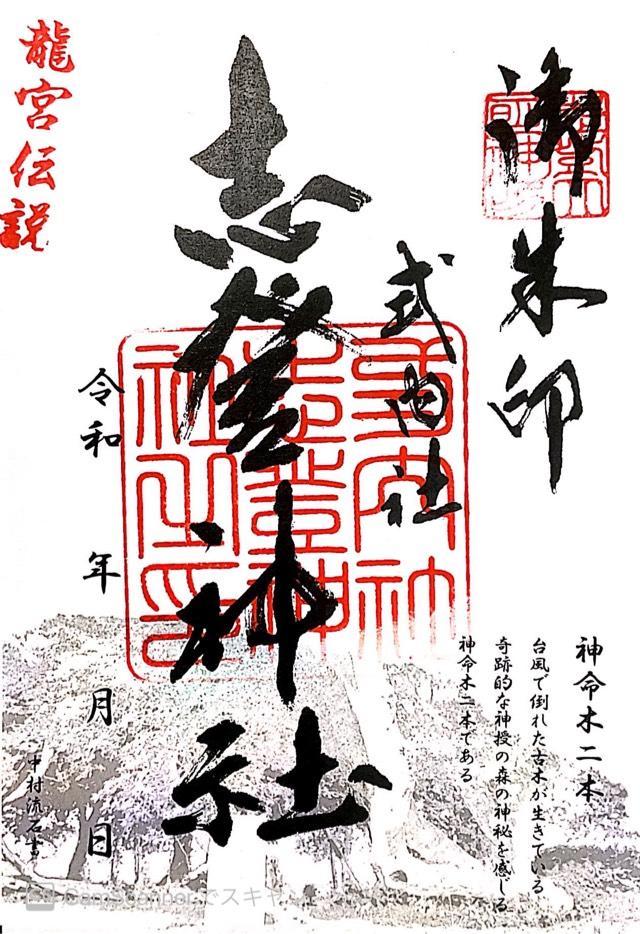 御朱印
式内社
志登神社
龍宮伝説
令和 年 月 日
中村流石書
神命木二本
台風で倒れた古木が生きている
奇跡的な神授の森の神秘を感じる
神命木二本である
CamScannerでスキャン